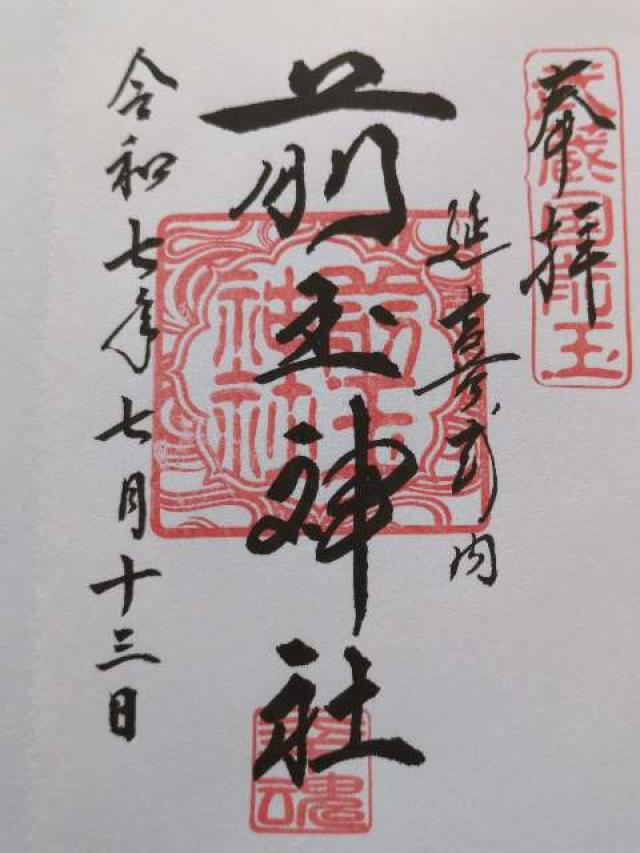 奉拝
武蔵国前玉
延喜式内
前玉神社
前玉神社
幸魂
令和七年七月十三日